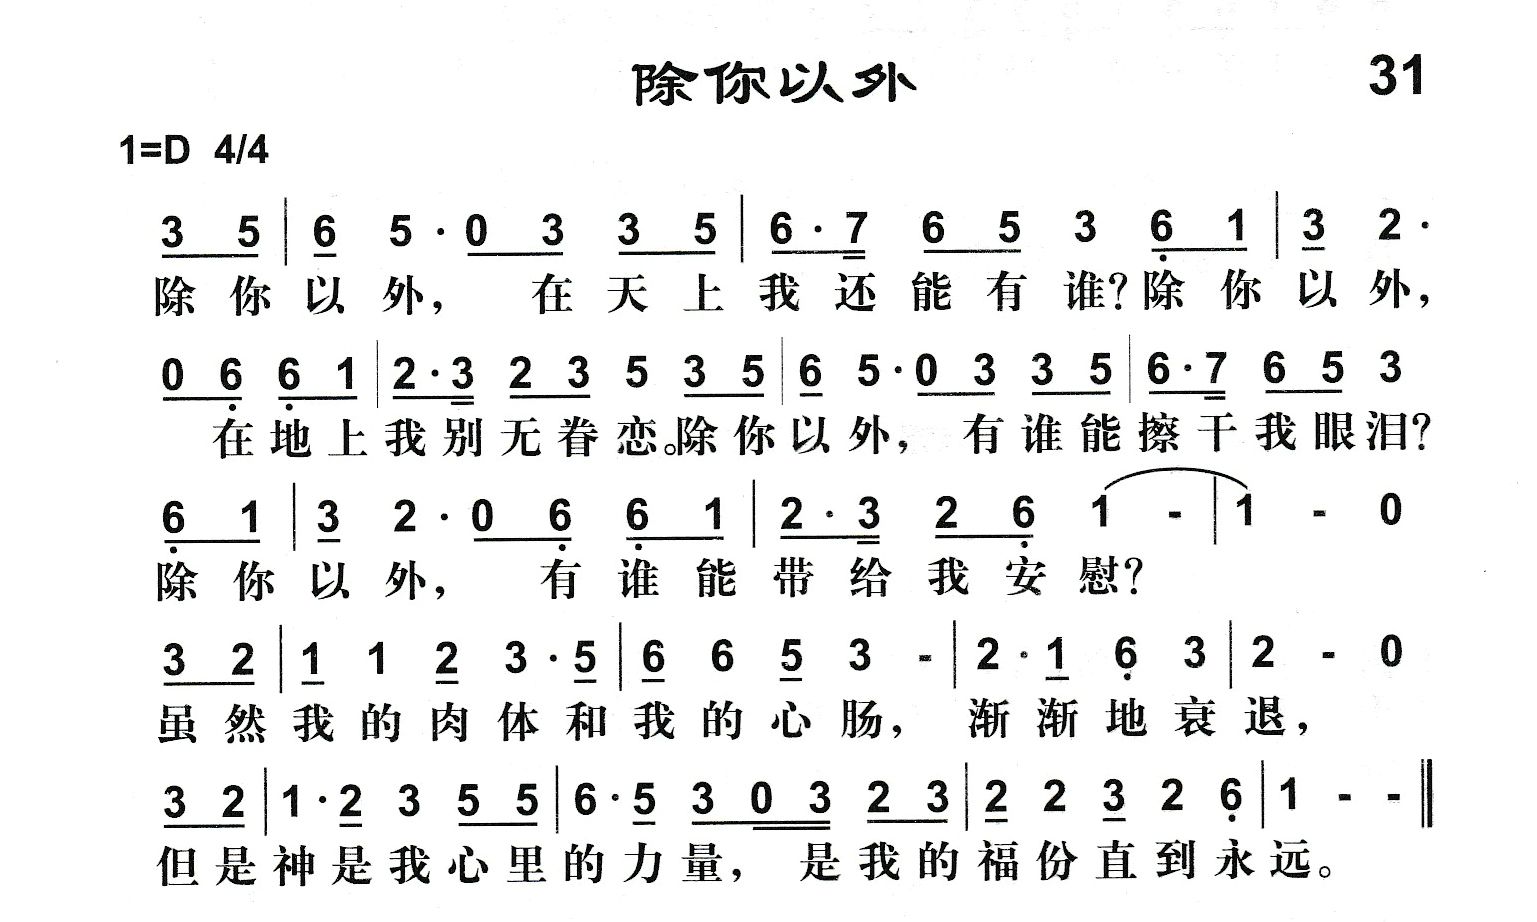 除你以外 31
1=D 4/4
3 5 | 6 5 · 0 3 3 5 | 6 · 7 6 5 3 6 1 | 3 2 ·
除你以外，在天上我还能有谁？除你以外，
0 6 6 1 | 2 · 3 2 3 5 3 5 | 6 5 · 0 3 3 5 | 6 · 7 6 5 3
在地上我别无眷恋。除你以外，有谁能擦干我眼泪？
6 1 | 3 2 · 0 6 6 1 | 2 · 3 2 6 1 - | 1 - 0
除你以外，有谁能带给我安慰？
3 2 | 1 1 2 3 · 5 | 6 6 5 3 - | 2 · 1 6 3 | 2 - 0
虽然我的肉体和我的心肠，渐渐地衰退，
3 2 | 1 · 2 3 5 5 | 6 · 5 3 0 3 2 3 | 2 2 3 2 6 | 1 - - ‖
但是神是我心里的力量，是我的福份直到永远。